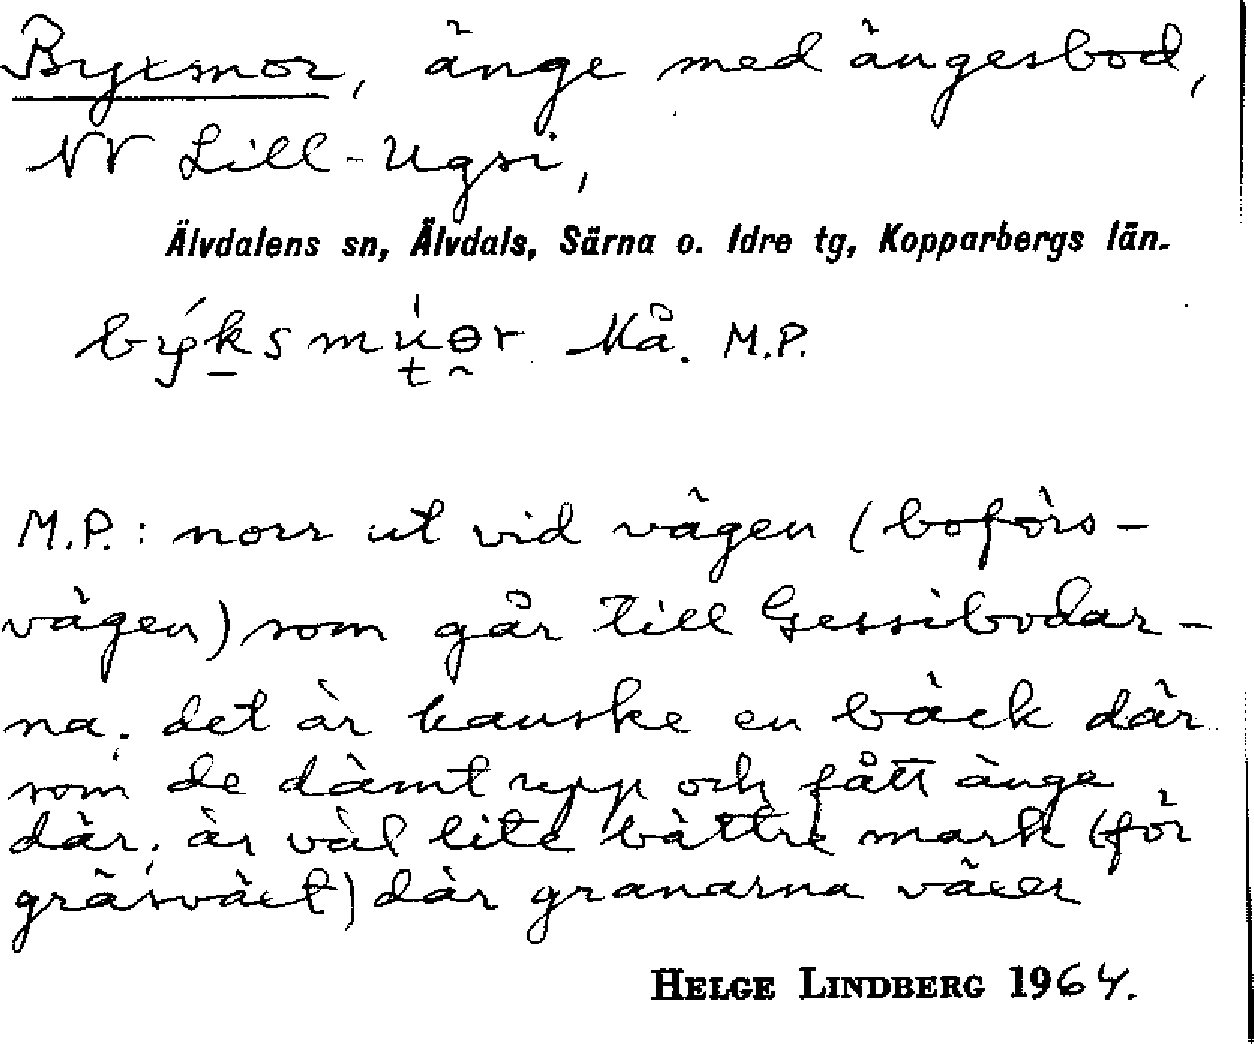 Byxmor, änge med ängesbod,
NV Lill-Ugsi,
Älvdalens sn, Älvdals, Särna o. Idre tg, Kopparbergs län.
Må. M.P.
M.P.: norr ut vid vägen (boförs-
vägen) som går till Gessibodar-
na; det är kanske en bäck där
som de dämt upp och fått änge
där; är väl lite bättre mark (för
gräsväxt) där granarna växer
HELGE LINDBERG 1964.